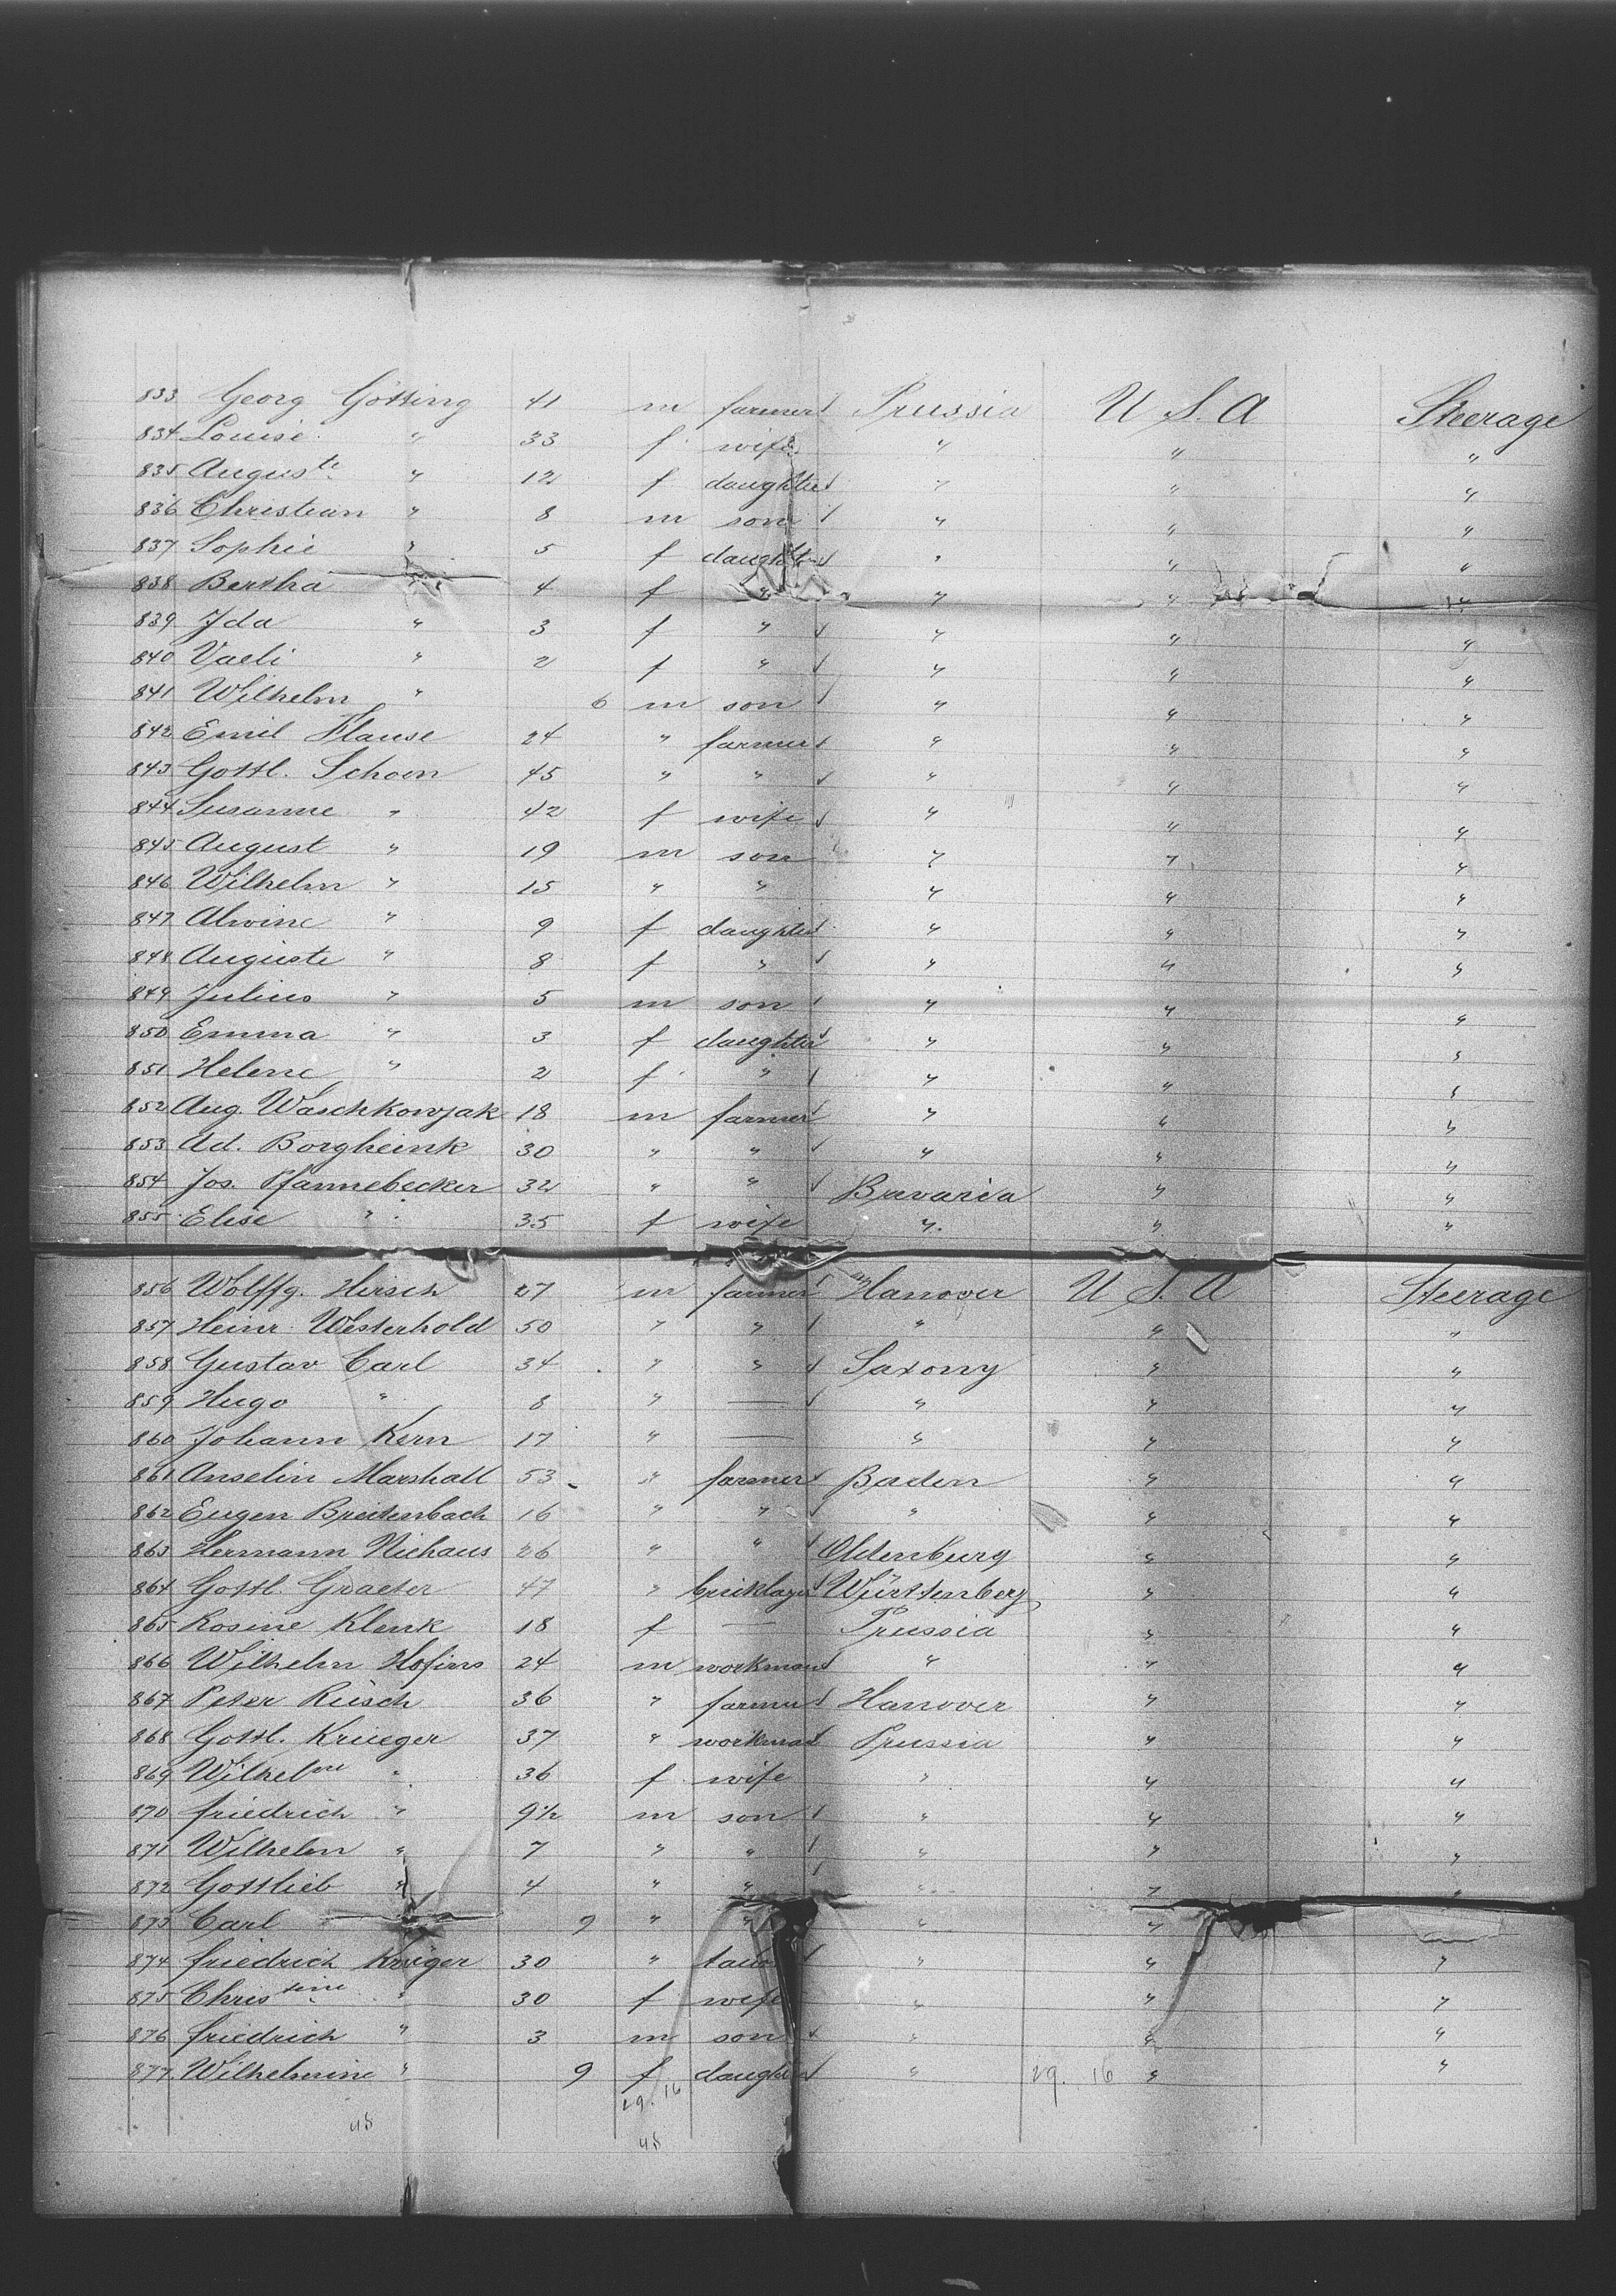 833 Georg Götting 41 m farmer Prussia U. S. A Steerage
834 Louise " 33 f wife " " "
835 Auguste " 12 f daughter " " "
836 Christian " 8 m son " " "
837 Sophie " 5 f daughter " " "
838 Bertha " 4 f " " " "
839 Ida " 3 f " " " "
840 Vaeli " 2 f " " " "
841 Wilhelm " 6 m son " " "
842 Emil Klause 24 " farmer " " "
843 Gottl. Schoen 45 " " " " "
844 Susanne " 42 f wife " " "
845 August " 19 m son " " "
846 Wilhelm " 15 " " " " "
847 Alwine " 9 f daughter " " "
848 Auguste " 8 f " " " "
849 Julius " 5 m son " " "
850 Emma " 3 f daughter " " "
851 Helene " 2 f " " " "
852 Aug. Waschkowjak 18 m farmer " " "
853 Ad. Borgheink 30 " " " " "
854 Jos. Pfannebecker 32 " " Bavaria " "
855 Elise " 35 f wife " " "
856 Wolffg. Hirsch 27 m farmer Hanover U. S. A Steerage
857 Heinr. Westerhold 50 " " " " "
858 Gustav Carl 34 " " Saxony " "
859 Hugo " 8 " — " " "
860 Johann Kern 17 " — " " "
861 Anselin Marshall 53 " farmer Baden " "
862 Eugen Breitenbach 16 " " " " "
863 Hermann Niehaus 26 " " Oldenburg " "
864 Gottl. Graeter 47 " bricklayer Württenberg " "
865 Rosine Klenk 18 f — Prussia " "
866 Wilhelm Hofins 24 m workman " " "
867 Peter Rüsch 36 " farmer Hanover " "
868 Gottl. Krueger 37 " workman Prussia " "
869 Wilhelme " 36 f wife " " "
870 friedrich " 9½ m son " " "
871 Wilhelm " 7 " " " " "
872 Gottlieb " 4 " " " " "
873 Carl 9 " " " "
874 friedrich Krüger 30 " " " "
875 Christine " 30 f wife " " "
876 friedrich " 3 m son " " "
877 Wilhelmine " 9 f daughter " 29. 16 " "
29. 16
48
48